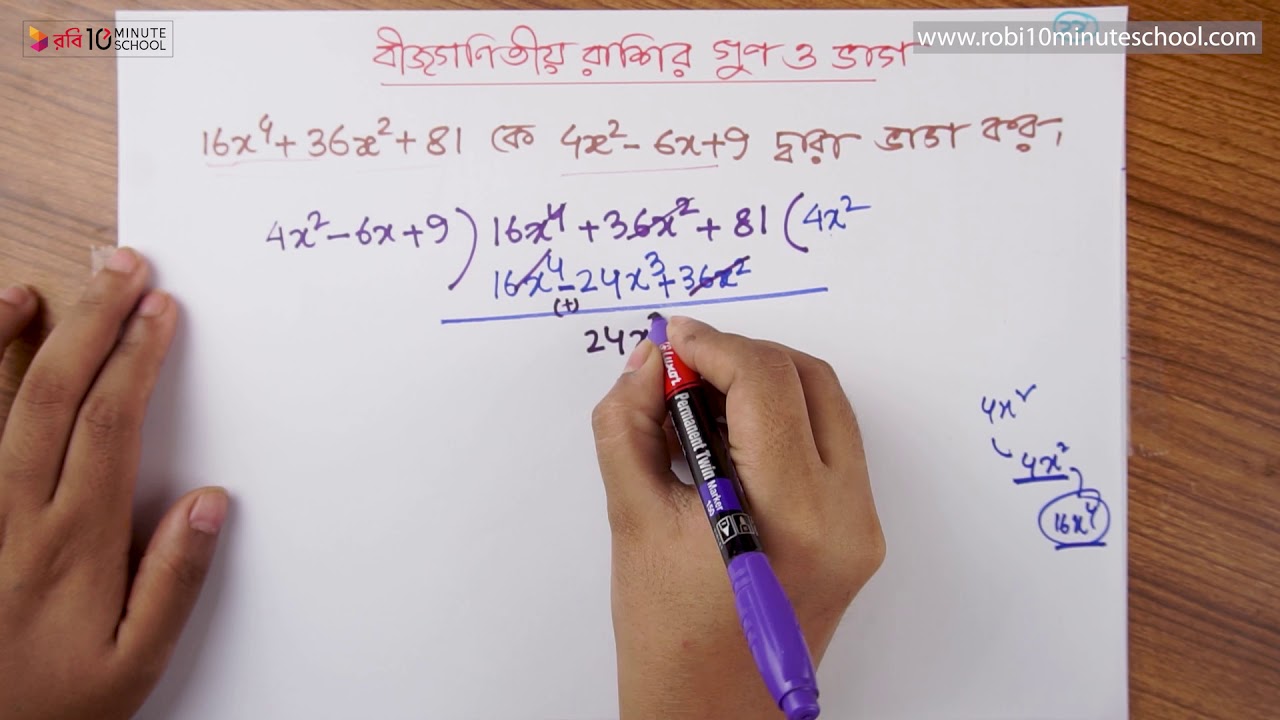 রবি 10 MINUTE SCHOOL
www.robi10minuteschool.com
বীজগণিতীয় রাশির গুণ ও ভাগ
16x⁴ + 36x² + 81 কে 4x² - 6x + 9 দ্বারা ভাগ কর।
4x² - 6x + 9 ) 16x⁴ + 36x² + 81 ( 4x²
16x⁴ - 24x³ + 36x²
(+)
24x³
4x²
4x²
16x⁴
Luxor Permanent Twin Marker